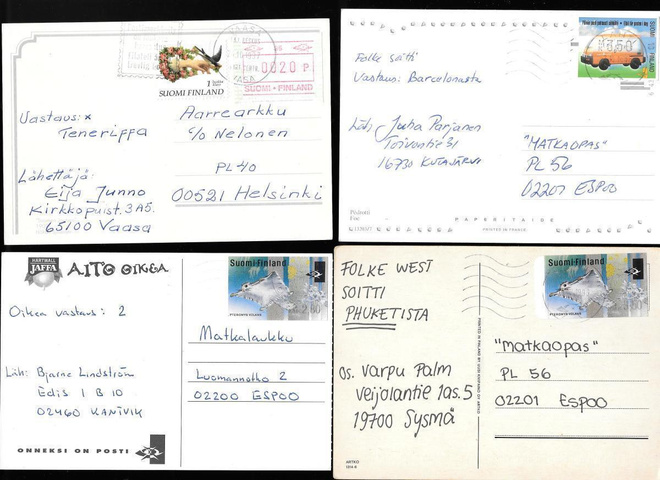 VAASA
VASA
1
SUOMI FINLAND
0020 P
SUOMI - FINLAND
Vastaus: x
Teneriffa
Aarrearkku
c/o Nelonen
PL 40
00521 Helsinki
Lähettäjä:
Eija Junno
Kirkkopuist. 3 A5.
65100 Vaasa
Folke soitti
Vastaus: Barcelonasta
SUOMI FINLAND
Läh: Juha Parjanen
Toivontie 31
16730 KUTAJÄRVI
"MATKAOPAS"
PL 56
02201 ESPOO
PAPERITAIDE
PRINTED IN FRANCE
HARTWALL
JAFFA
AITO OIKEA
Suomi-Finland
2,80
PTEROMYS VOLANS
Oikea vastaus: 2
Matkalaukku
Luomannotko 2
02200 ESPOO
Läh: Bjarne Lindström
Edis 1 B 10
02460 KANTVIK
ONNEKSI ON POSTI
FOLKE WEST
SOITTI
PHUKETISTA
Suomi-Finland
PTEROMYS VOLANS
os. Varpu Palm
Veijolantie 1as.5
19700 Sysmä
"Matkaopas"
PL 56
02201 ESPOO
ARTKO